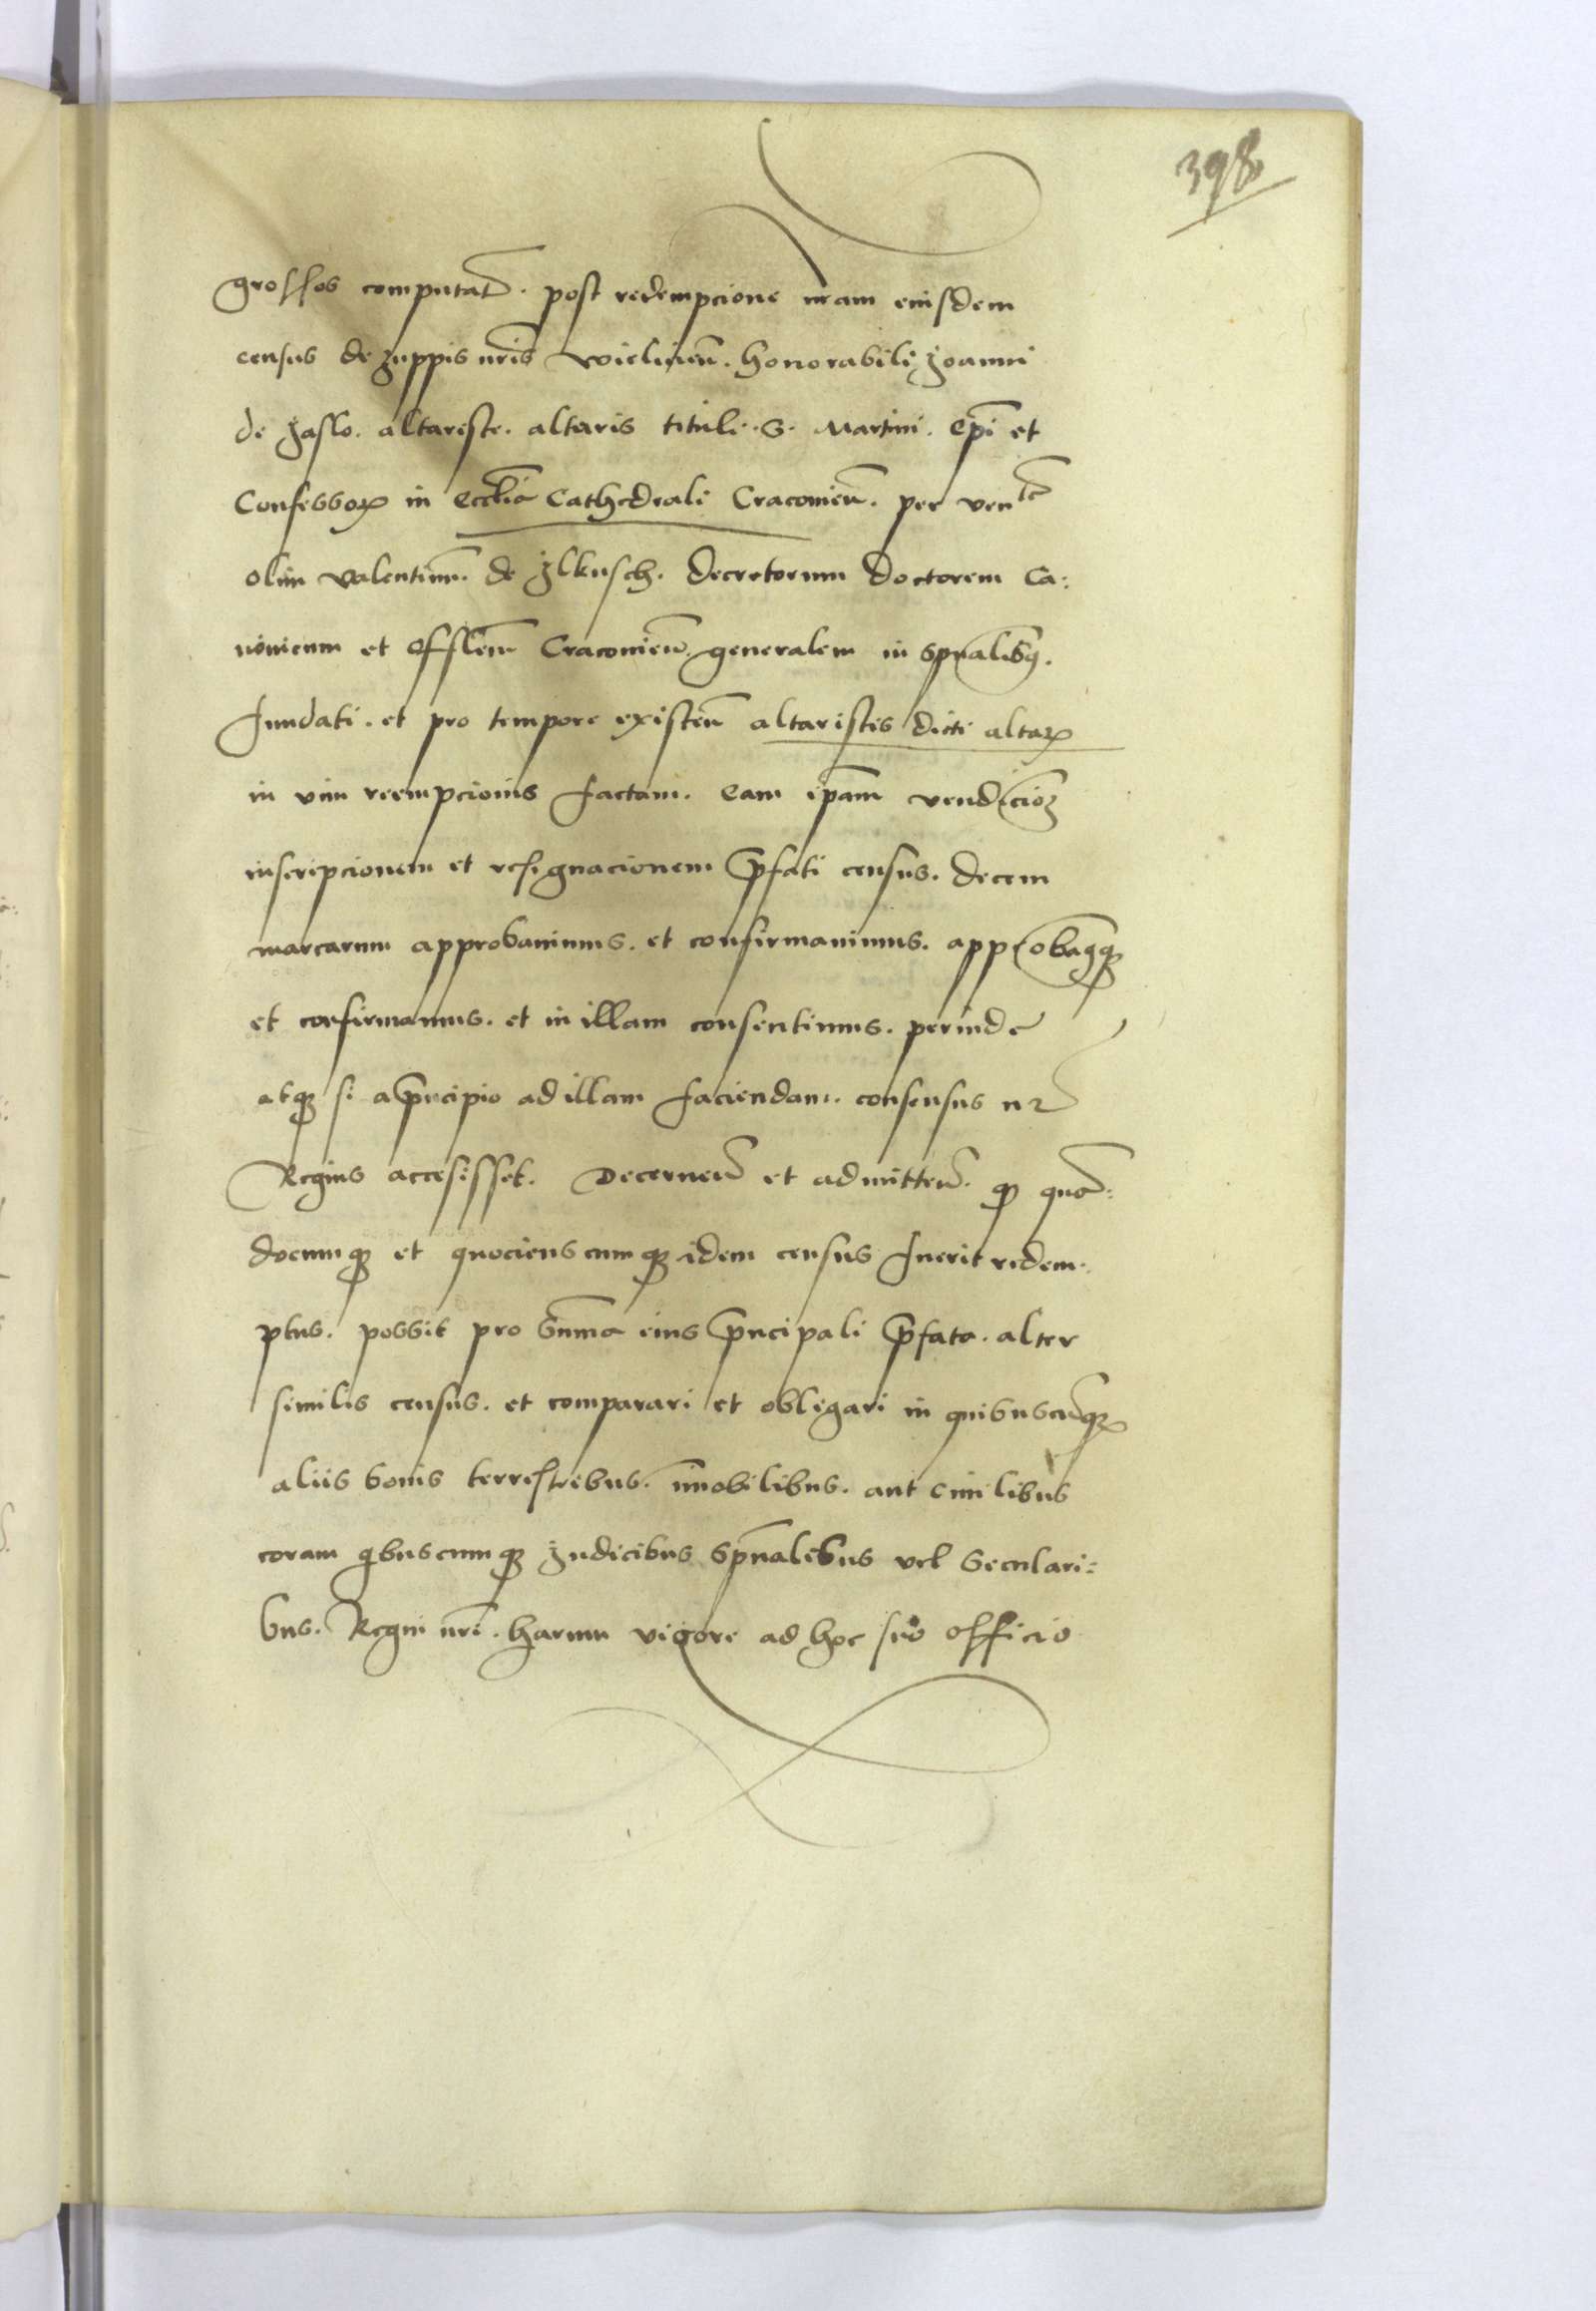 398
grossos computat̄. post redempcione nr̄am eiusdem
census de zuppis nr̄is vielicien̄. honorabili Joanni
de Jaslo. altariste. altaris tituli. S. Martini. Ep̄i et
Confessoꝝ in Eccl̄ia Cathedrali Cracovien̄. per ven̄le
olim Valentinū. de Jlkusch. decretorum doctorem Ca:
nonicum et Offlem̄ Cracovien̄. generalem in sp̄ualibꝫ.
fundati. et pro tempore existen̄ altaristis dicti altaꝝ
in vim reempcionis factam. Eam ip̄am vendicioꝫ
inscripcionem et resignacionem p̄fati census. decem
marcarum approbavimus. et confirmavimus. approbamꝰqꝫ
et confirmamus. et in illam consentimus. perinde
atqꝫ si a p̄ncipio ad illam faciendam. consensus nr̄
Regius accesisset. Decernen̄ et admitten̄. qꝫ quan̄:
documqꝫ et quocienscumqꝫ idem census fuerit redem.
ptus. possit pro sūmma eius p̄ncipali p̄fata. alter
similis census. et comparari et obligari in quibuscūqꝫ
aliis bonis terrestribus. īmobilibus. aut civilibus
coram qibuscumqꝫ Judicibus sp̄ualibus vel seculari:
bus. Regni nr̄i. harum vigore ad hoc suo officio